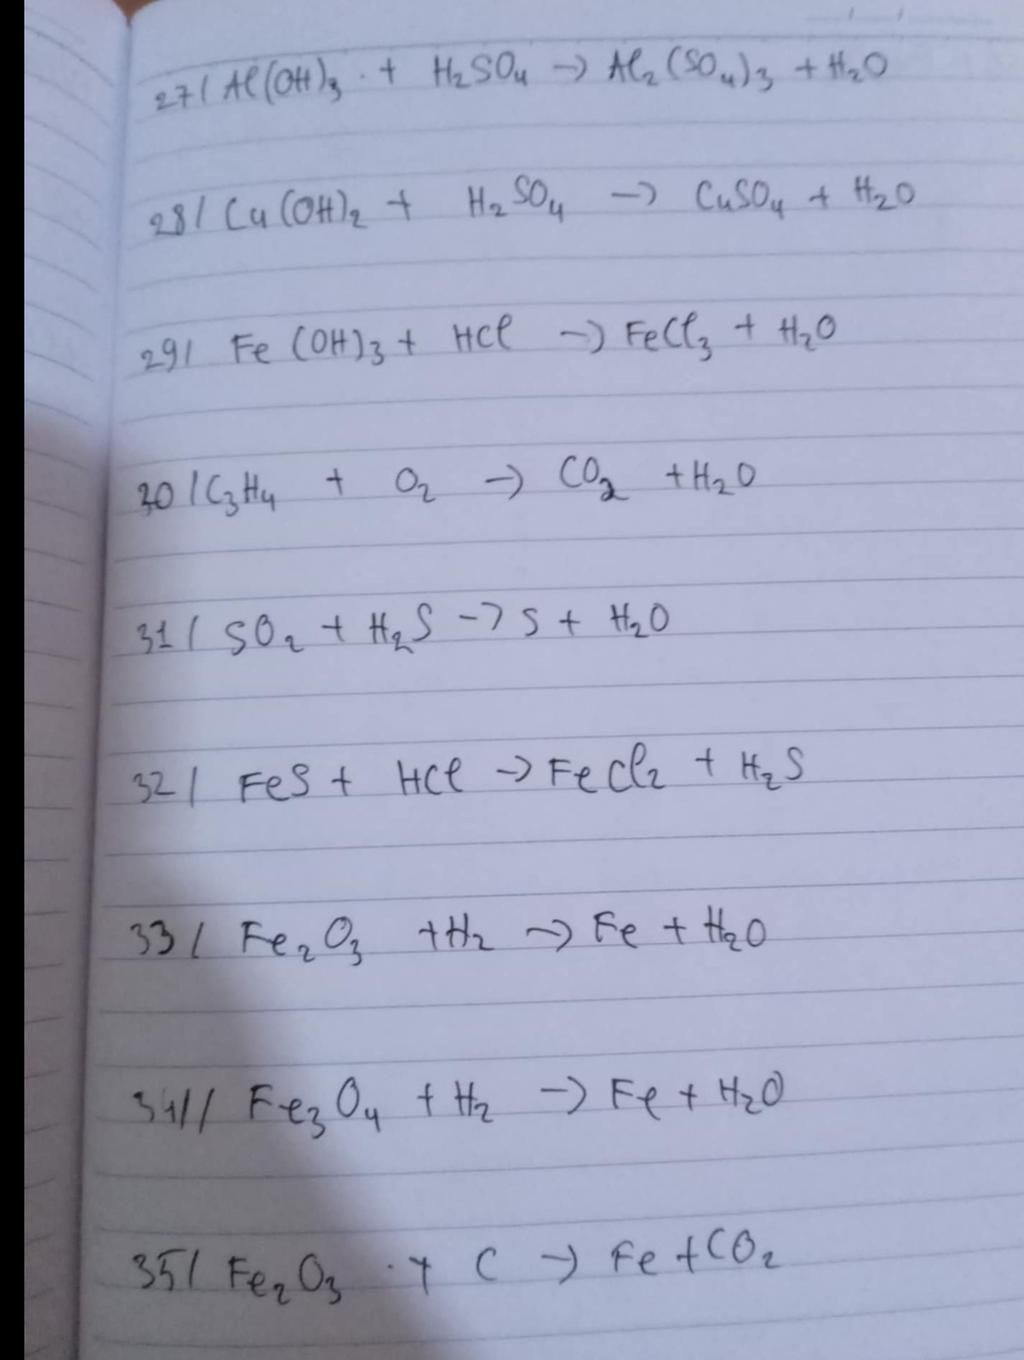 27/ Al(OH)₃ + H₂SO₄ → Al₂(SO₄)₃ + H₂O
28/ Cu(OH)₂ + H₂SO₄ → CuSO₄ + H₂O
29/ Fe(OH)₃ + HCl → FeCl₃ + H₂O
30/ C₃H₄ + O₂ → CO₂ + H₂O
31/ SO₂ + H₂S → S + H₂O
32/ FeS + HCl → FeCl₂ + H₂S
33/ Fe₂O₃ + H₂ → Fe + H₂O
34// Fe₃O₄ + H₂ → Fe + H₂O
35/ Fe₂O₃ + C → Fe + CO₂